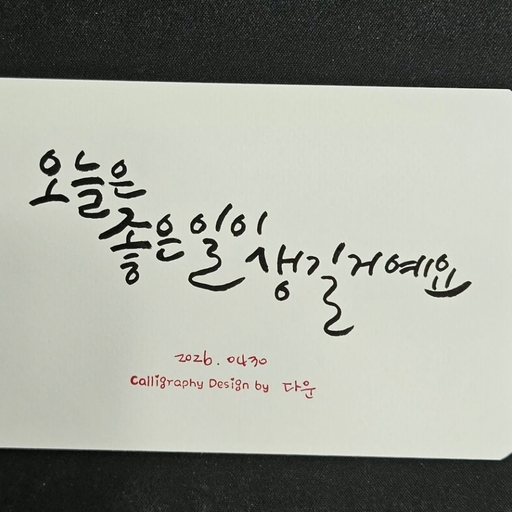 오늘은
좋은 일이
생길거예요
2026. 0430
Calligraphy Design by 다운